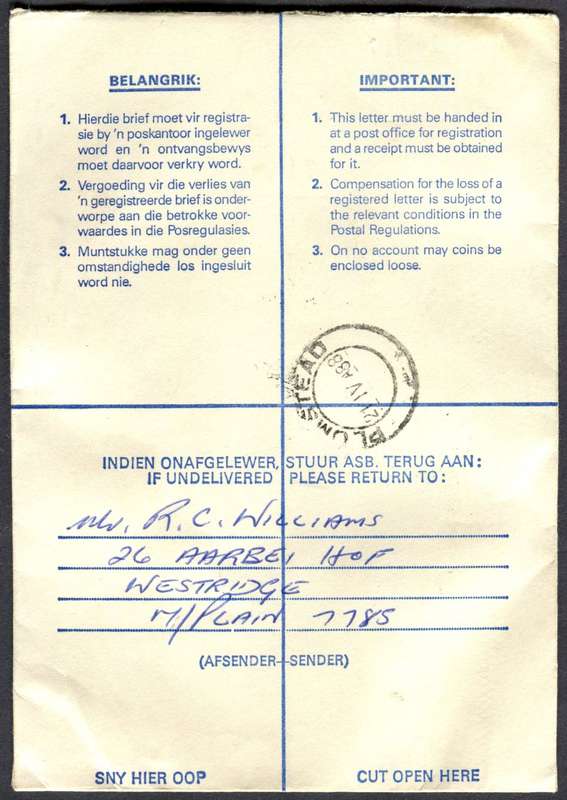 BELANGRIK:
1. Hierdie brief moet vir registra-
sie by 'n poskantoor ingelewer
word en 'n ontvangsbewys
moet daarvoor verkry word.
2. Vergoeding vir die verlies van
'n geregistreerde brief is onder-
worpe aan die betrokke voor-
waardes in die Posregulasies.
3. Muntstukke mag onder geen
omstandighede los ingesluit
word nie.
IMPORTANT:
1. This letter must be handed in
at a post office for registration
and a receipt must be obtained
for it.
2. Compensation for the loss of a
registered letter is subject to
the relevant conditions in the
Postal Regulations.
3. On no account may coins be
enclosed loose.
PLUMSTEAD
INDIEN ONAFGELEWER, STUUR ASB. TERUG AAN:
IF UNDELIVERED PLEASE RETURN TO:
R.C. WILLIAMS
26 AARBEI HOF
WESTRIDGE
M/PLAIN 7785
(AFSENDER–SENDER)
SNY HIER OOP
CUT OPEN HERE